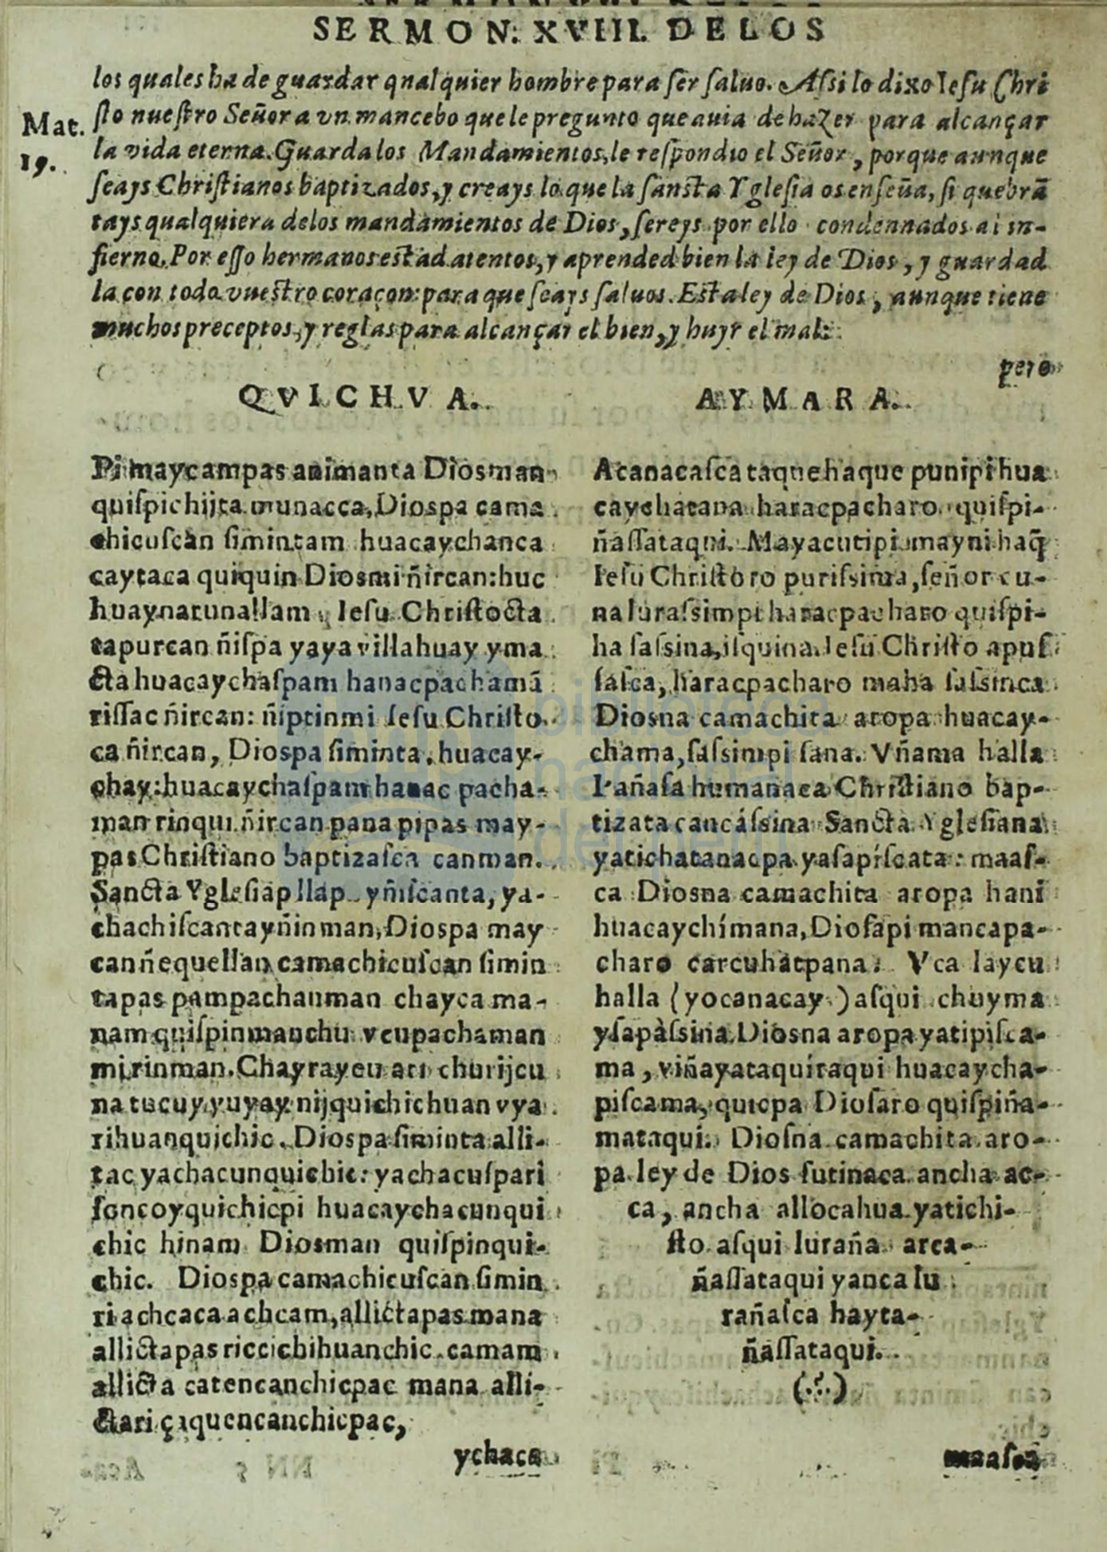 SERMON. XVIII. DE LOS
los quales ha de guardar qualquier hombre para ser saluo. Assi lo dixo Iesu Chri
sto nuestro Señor a vn mancebo que le pregunto que auia de hazer para alcançar
Mat. 19.
la vida eterna. Guarda los Mandamientos, le respondio el Señor, porque aunque
seays Christianos baptizados, y creays lo que la sancta Yglesia os enseña, si quebrã
tays qualquiera de los mandamientos de Dios, sereys por ello condennados al in-
fierno. Por esso hermanos estad atentos, y aprended bien la ley de Dios, y guardad
la con todo vuestro coraçon: para que seays saluos. Esta ley de Dios, aunque tiene
muchos preceptos, y reglas para alcançar el bien, y huyr el mal:
pero
QVICHVA.
Pi maycampas animanta Diosman
quispichijta munacca, Diospa cama
chicuscan simintam huacaychanca
caytaca quiquin Diosmi ñircan: huc
huaynatunallam, Iesu Christocta
tapurcan ñispa yaya villahuay yma
cta huacaychaspam hanacpachamã
rissac ñircan: ñiptinmi Iesu Christo
ca ñircan, Diospa siminta huacay-
chay: huacaychaspam hanac pacha-
man rinqui ñircan pana pipas may-
pas Christiano baptizasca canman.
Sancta Yglesiap llap yñiscanta, ya-
chachiscantayñinman, Diospa may
canñequellan camachicuscan simin
tapas pampachanman chayca ma-
nam quispinmanchu vcupachaman
mi rinman. Chayraycu ari churijcu
na tucuy yuyay nijquichichuan vya
rihuanquichic. Diospa siminta alli-
tac yachacunquichic: yachacuspari
soncoyquichicpi huacaychacunqui
chic hinam Diosman quispinqui-
chic. Diospa camachicuscan simin
ri achcaca achcam, allictapas mana
allictapas riccichihuanchic. camam
allicta catencanchicpac mana alli-
ctari çiquencanchicpac,
ychaca
AYMARA.
Acanacasca taque haque punipi hua
caychatana haracpacharo quispi-
ñassataqui. Maya cutipi mayni haq̃
Iesu Christo ro purissina, señor cu-
na lurassimpi haracpacharo quispi-
ha sassina, isquina. Iesu Christo apus
sasca, haracpacharo maha sassinca
Diosna camachita aropa huacay-
chama, sassimpi sana. Vñama halla
Pañasa humanaca Christiano bap-
tizata cancássina Sancta Yglesiana
yatichatanacpa yasapíscata: maas-
ca Diosna camachita aropa hani
huacaychímana, Diosapi mancapa-
charo carcuhatpana. Vca laycu
halla (yocanacay) asqui chuyma
ysapàssina. Diosna aropa yatipisca-
ma, viñayataquiraqui huacaycha-
piscama, quicpa Diosaro quispiña-
mataqui. Diosna camachita aro-
pa ley de Dios sutinaca ancha ac-
ca, ancha allocahua yatichi-
sto asqui luraña arca-
ñassataqui yanca lu
rañasca hayta-
ñassataqui.
maasca